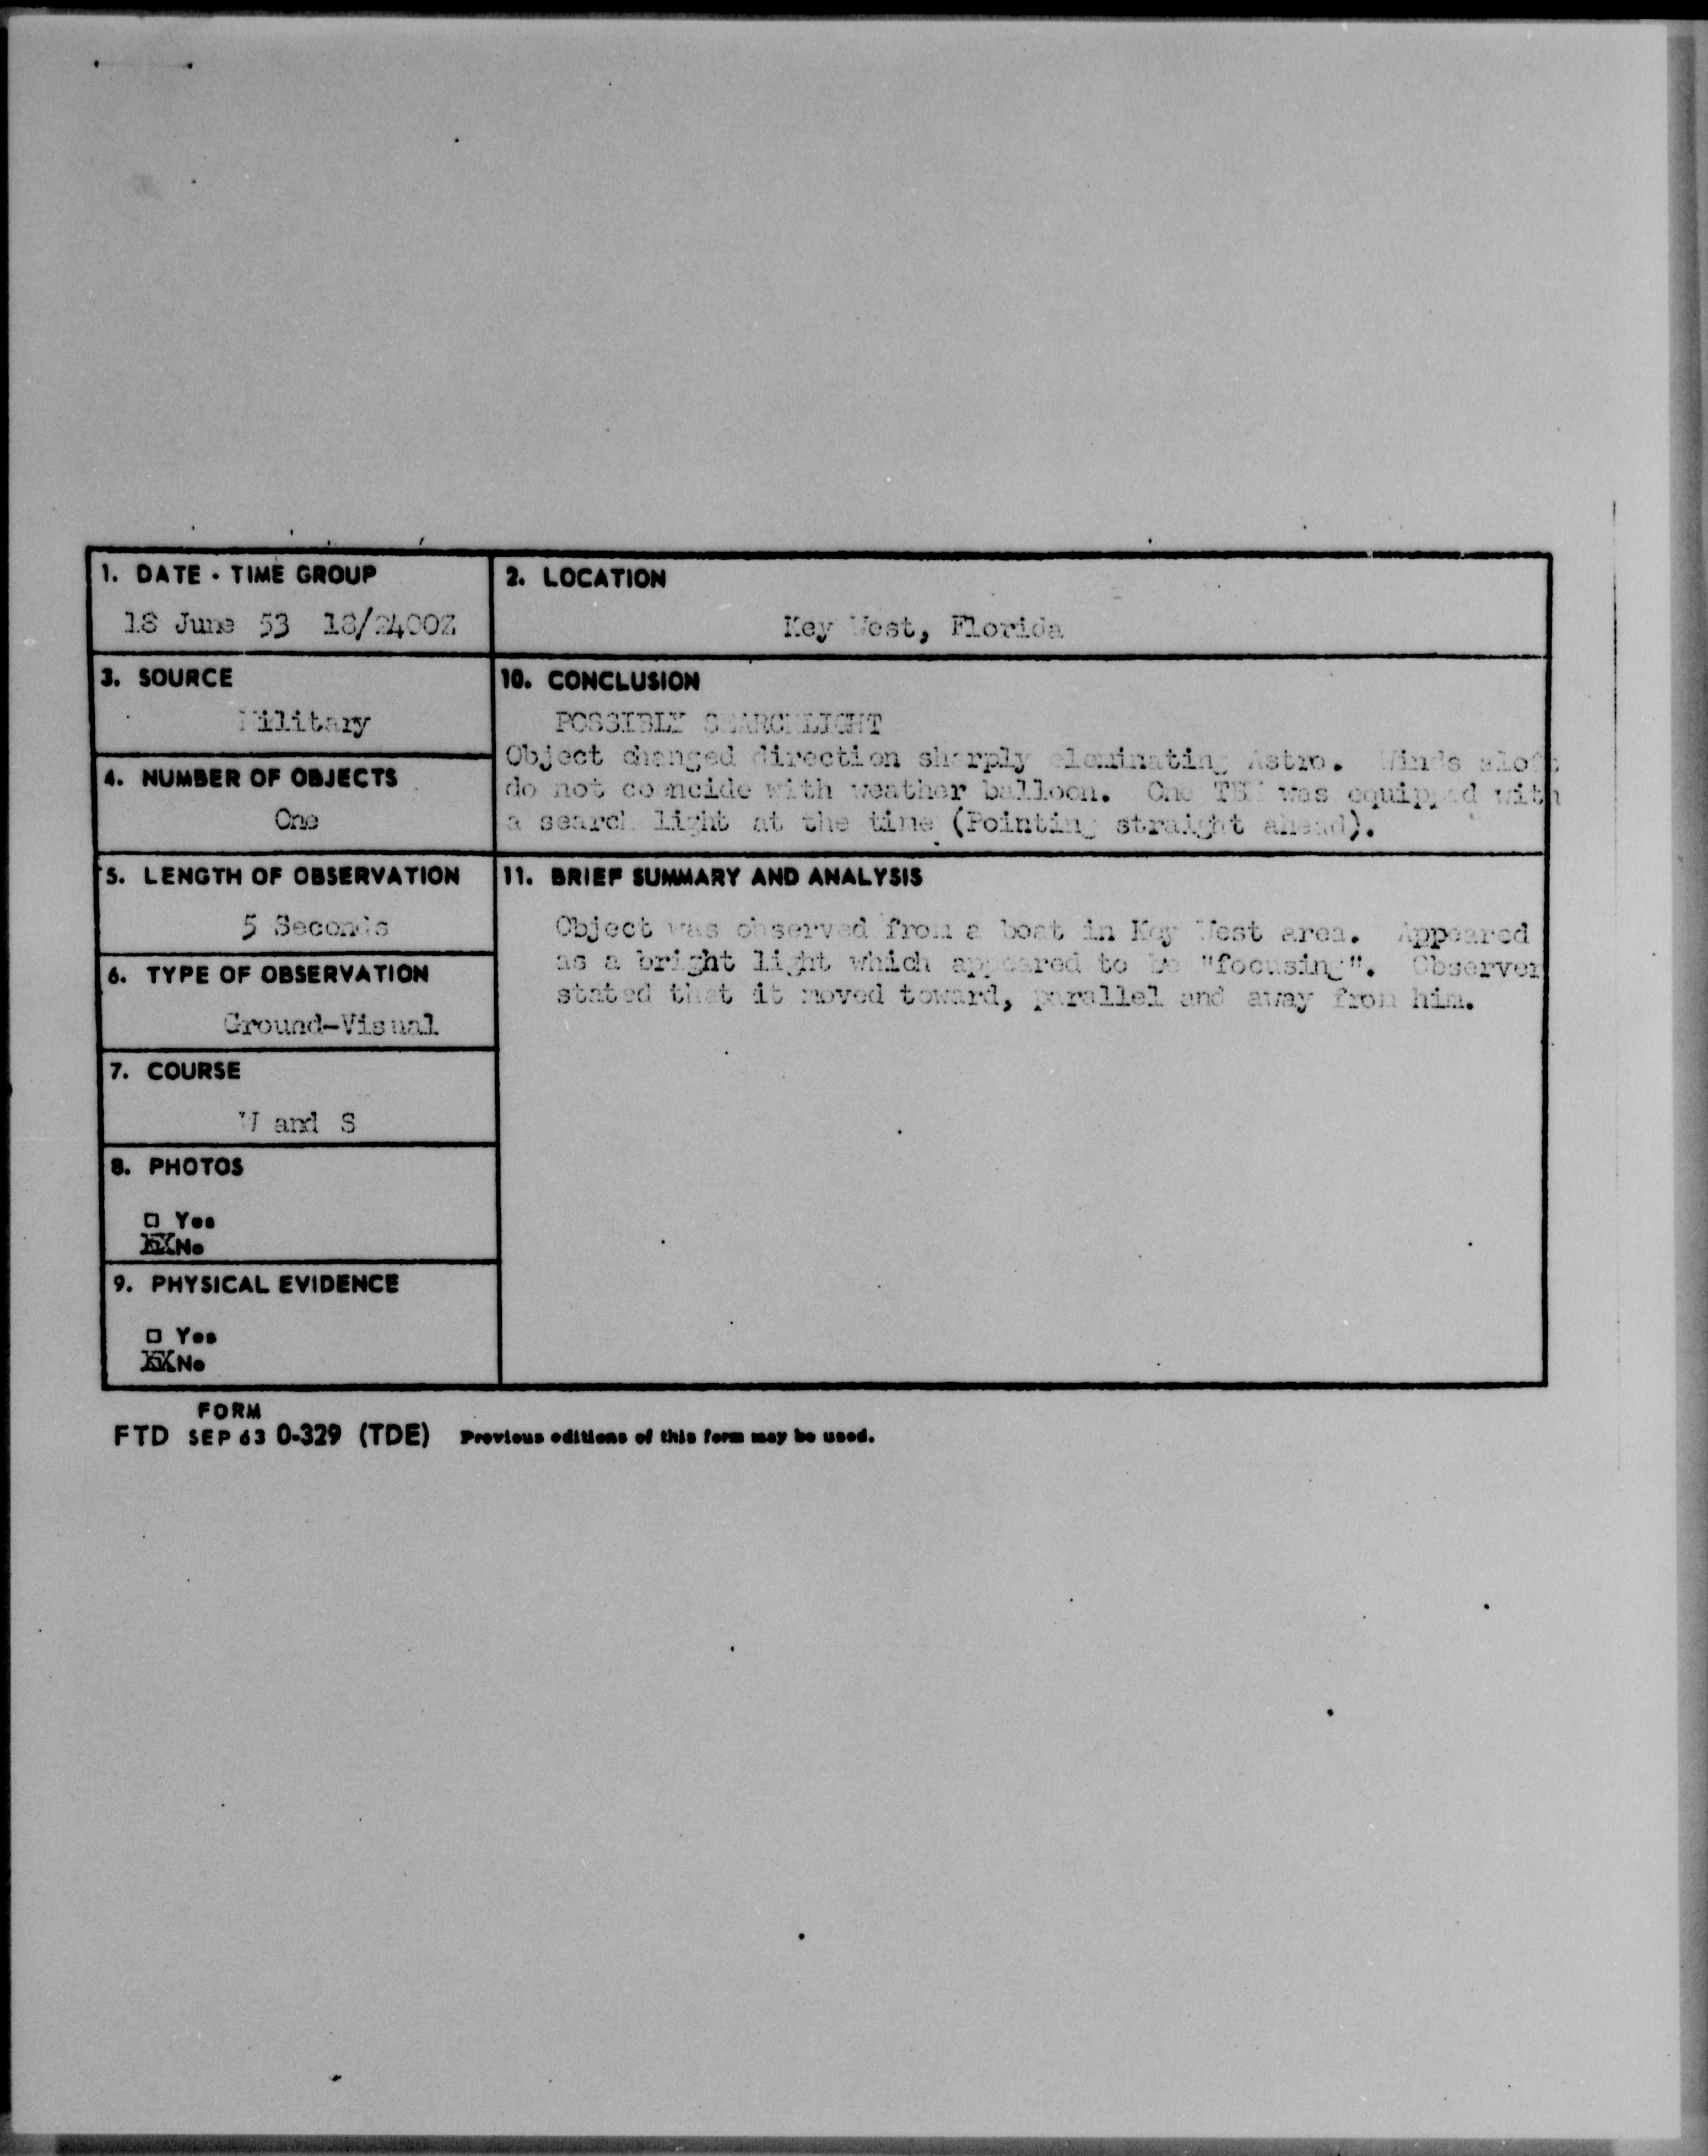 1. DATE - TIME GROUP
18 June 53 18/2400Z
2. LOCATION
Key West, Florida
3. SOURCE
Military
10. CONCLUSION
POSSIBLY SEARCHLIGHT
Object changed direction sharply eleminating Astro. Winds aloft
do not coencide with weather balloon. One was equipped with
a search light at the time (Pointing straight ahead).
4. NUMBER OF OBJECTS
One
5. LENGTH OF OBSERVATION
5 Seconds
11. BRIEF SUMMARY AND ANALYSIS
Object was observed from a boat in Key West area. Appeared
as a bright light which appeared to be "focusing". Observer
stated that it moved toward, parallel and away from him.
6. TYPE OF OBSERVATION
Ground-Visual
7. COURSE
W and S
8. PHOTOS
□ Yes
XX No
9. PHYSICAL EVIDENCE
□ Yes
XX No
FORM
FTD SEP 63 0-329 (TDE) Previous editions of this form may be used.